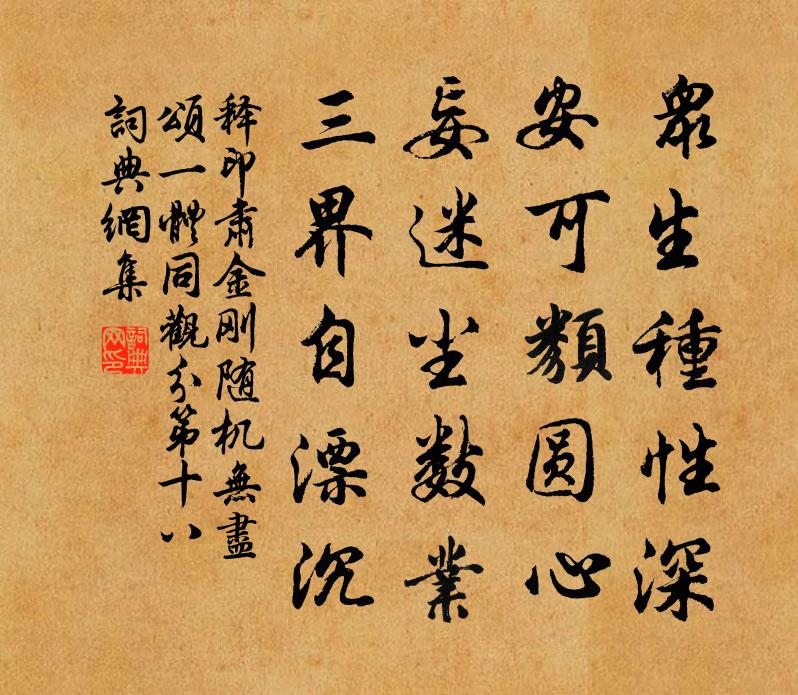 眾生種性深
安可類圆心
妄迷尘数業
三界自漂沉
释印肅金刚随机無盡
頌一體同觀分第十八
詞典網集
詞典网印